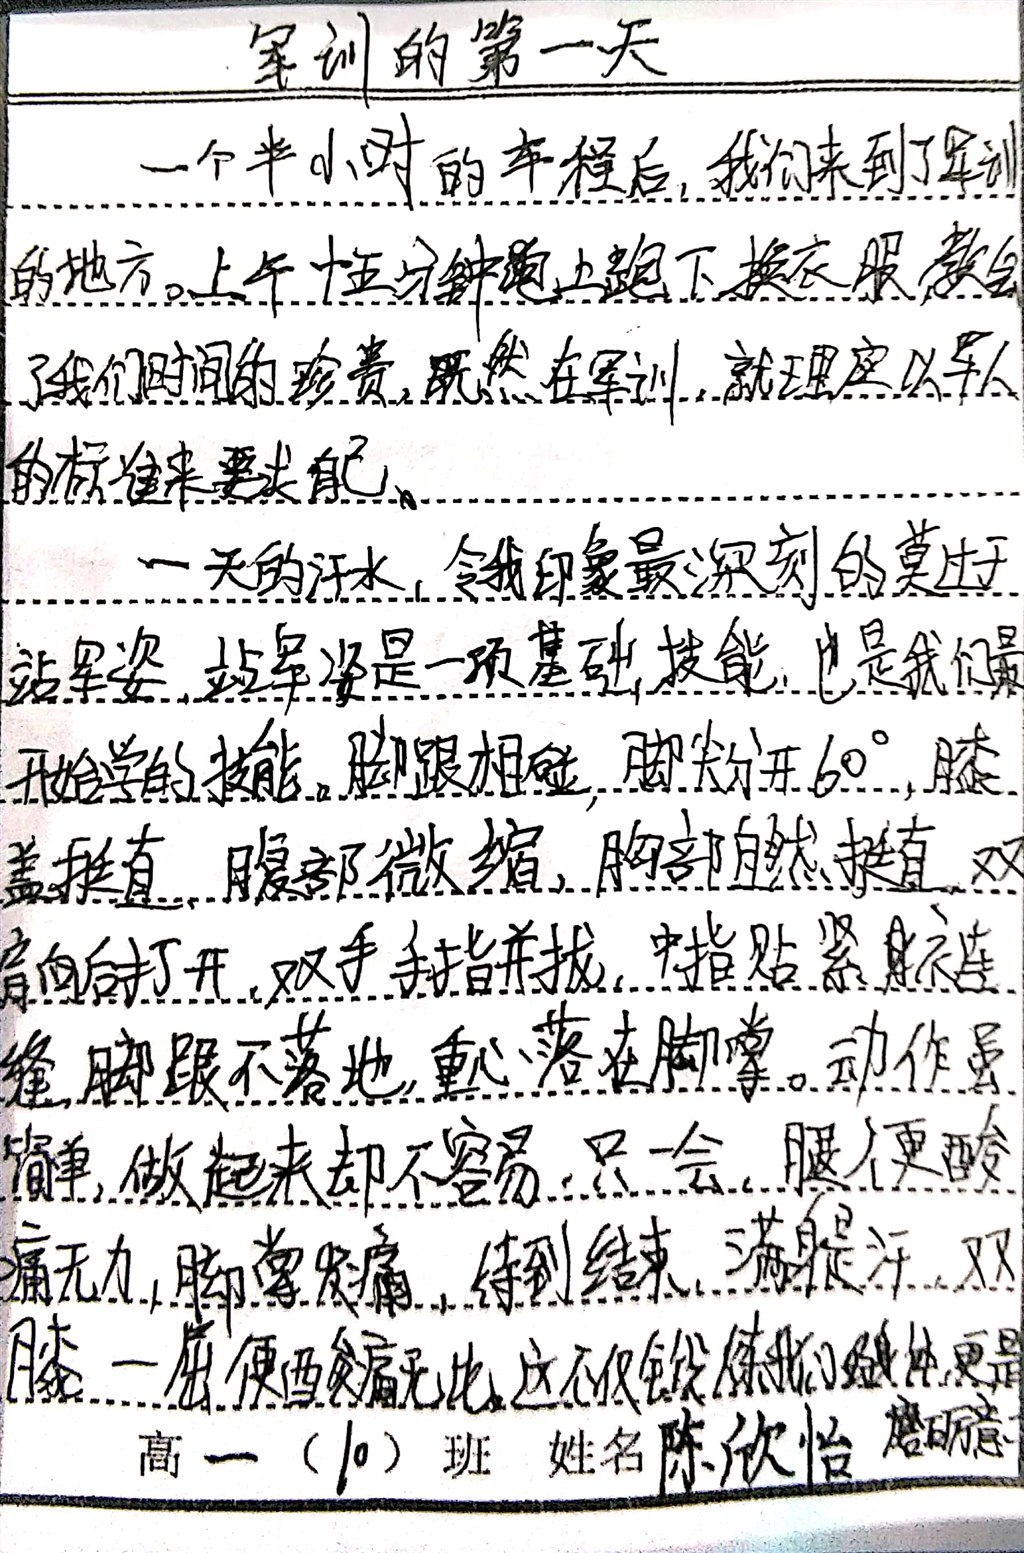 军训的第一天
一个半小时的车程后,我们来到了军训
的地方。上午十五分钟跑上跑下换衣服,教会
了我们时间的珍贵,既然在军训,就理应以军人
的标准来要求自己。
一天的汗水,令我印象最深刻的莫过于
站军姿,站军姿是一项基础技能,也是我们最
开始学的技能。脚跟相碰,脚尖分开60°,膝
盖挺直,腹部微缩,胸部自然挺直,双
肩向后打开,双手手指并拔,中指贴紧
缝,脚跟不落地,重心落在脚掌。动作虽
简单,做起来却不容易,只一会,腿便酸
痛无力,脚掌发痛,待到结束,满身是汗,双
膝一屈便酸痛无比。这不仅锻炼我们身体,更是
磨砺意
高一(10)班 姓名陈欣怡